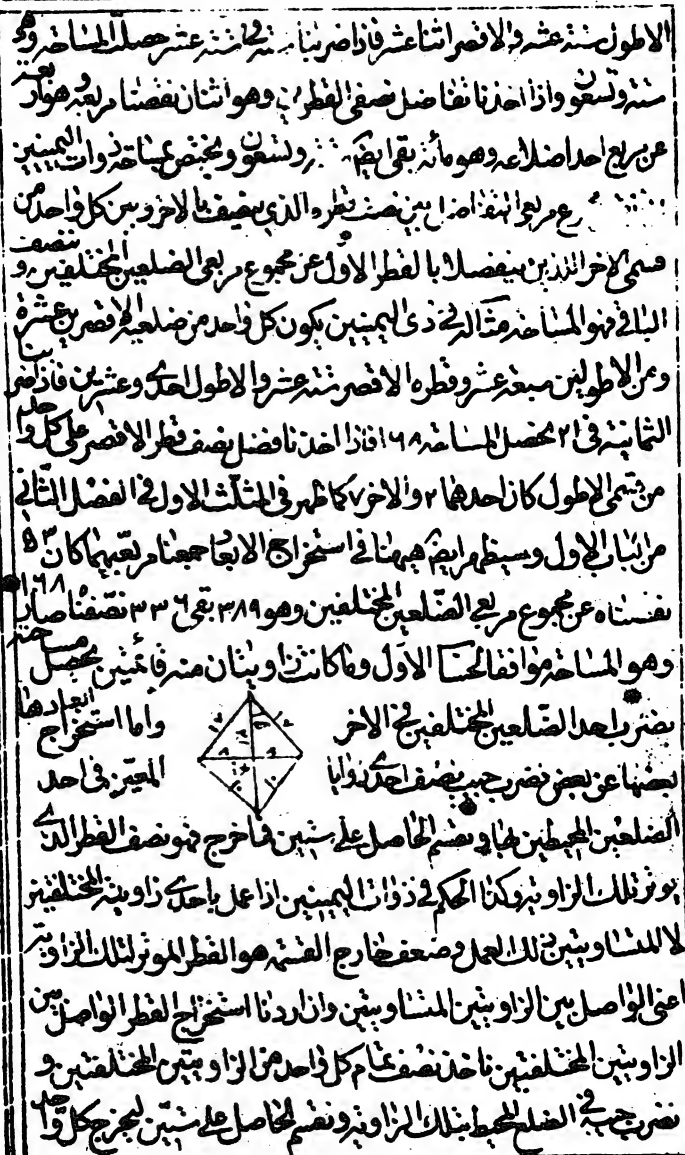 الاطول ستة عشر والاقصر اثنا عشر فاذا ضربنا ستة في ستة عشر حصلت المساحة وهو
ستة وتسعون واذا اخذنا تفاضل نصفي القطرين وهو اثنان نقصنا مربعه وهو اربعة
عن مربع احد اضلاعه وهو مائة بقي ايضا وتسعون ويختص بمساحة ذوات اليمينين
مربعي التفاضل بين نصف قطره الذي ينصف بالاخر وبين كل واحد من
قسمي الاخر اللذين ينفصلا بالقطر الاول عن مجموع مربعي الضلعين المختلفين وتنصف
الباقي فهو المساحة مثاله في ذي اليمينين يكون كل واحد من ضلعيه الاقصرين عشرة
ومن الاطولين سبعة عشر وقطره الاقصر ستة عشر والاطول احدى وعشرين فاذا ضربنا
الثمانية في ٢١ يحصل المساحة ١٦٨ فاذا اخذنا فضل نصف قطر الاقصر على كل واحد
من قسمي الاطول كان احدهما ٢ والاخر ٧ كما ظهر في المثلث الاول في الفصل الثاني
من الباب الاول وسيظهر ايضا ههنا في استخراج الابعاد جمعنا مربعيهما كان ٥٣
نقصناه عن مجموع مربعي الضلعين المختلفين وهو ٣٨٩ بقي ٣٣٦ نصفناه صار ١٦٨
وهو المساحة موافقا لحسا الاول وما كانت زاويتان منه قائمتين يحصل مساحته
بضرب احد الضلعين المختلفين في الاخر واما استخراج ابعادها
بعضها عن بعض نضرب جيب نصف احدى زوايا المعين في احد
الضلعين المحيطين بها ونقسم الحاصل على ستين فما خرج فهو نصف القطر الذي
يوتر تلك الزاوية وكذا الحكم في ذوات اليمينين اذا عمل باحدى زاويتيه المختلفتين
لا المتساويتين ذلك العمل وضعف خارج القسمة هو القطر الموتر لتلك الزاوية
اعني الواصل بين الزاويتين المتساويتين وان اردنا استخراج القطر الواصل بين
الزاويتين المختلفتين ناخذ نصف تمام كل واحد من الزاويتين المختلفتين و
نضرب جيبه في الضلع المحيط بتلك الزاوية ونقسم الحاصل على ستين ليخرج كل واحد